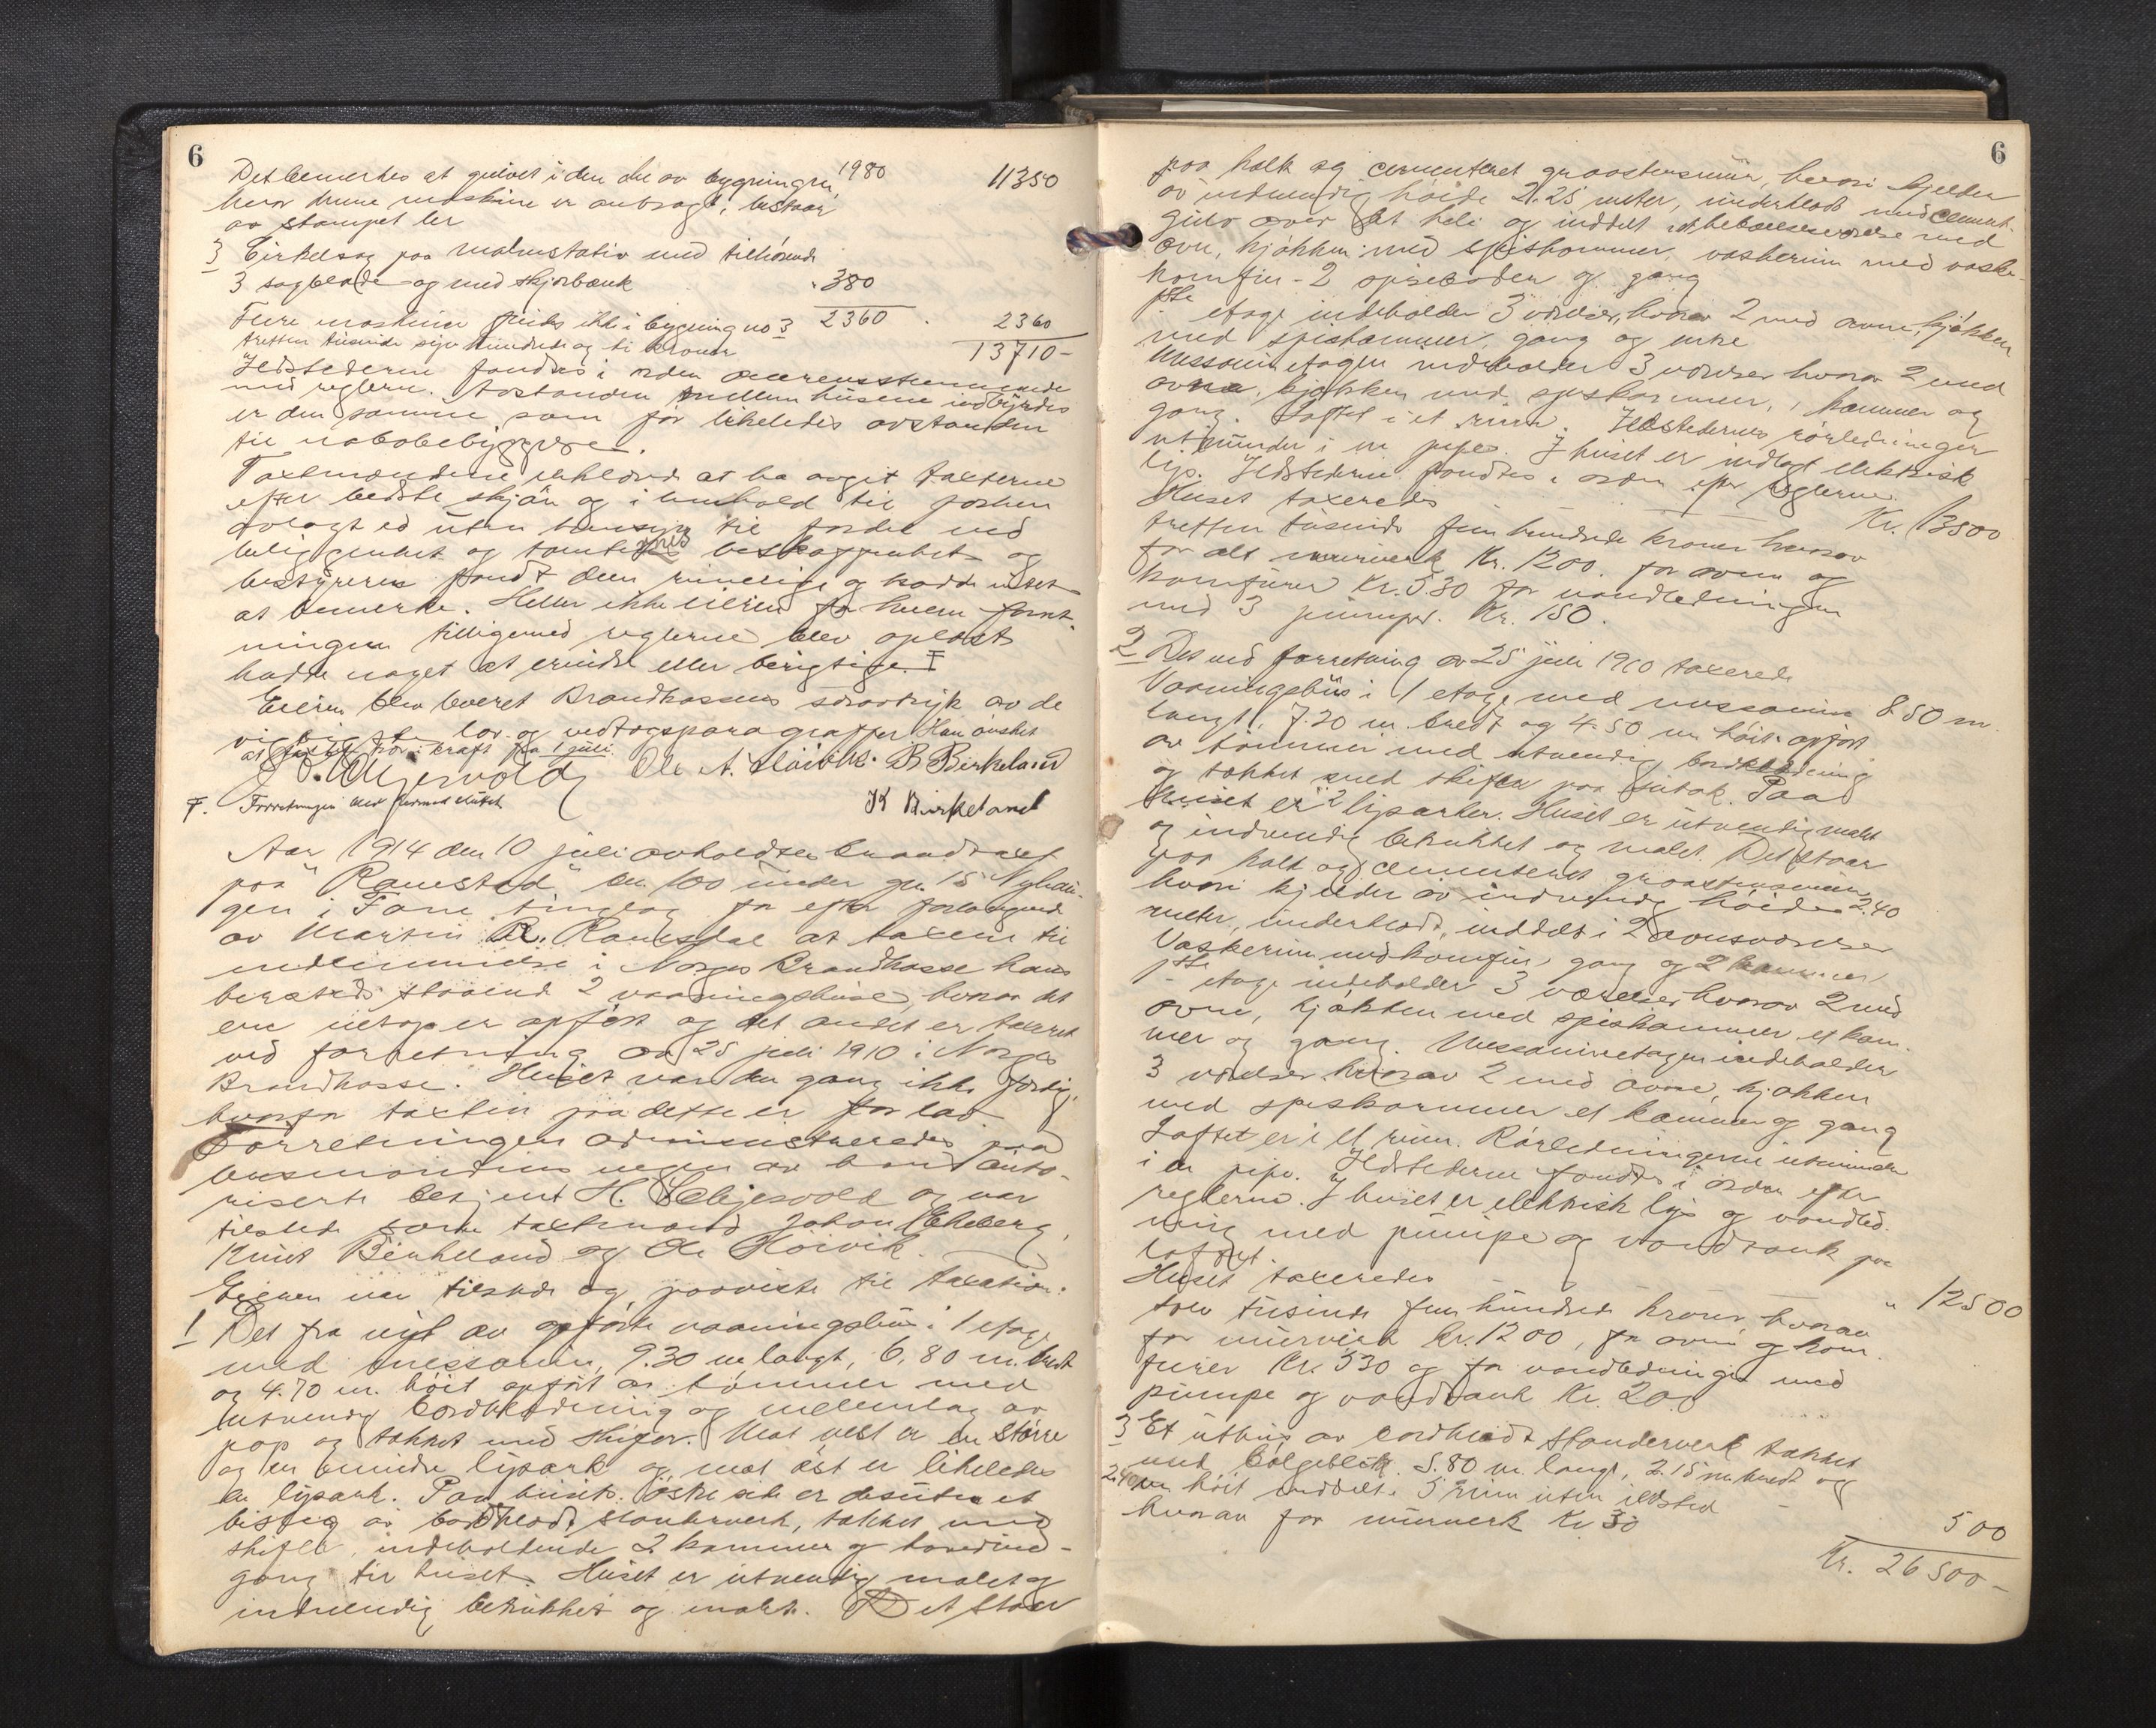 6
Det bemerkes at gulvet i den del av bygningen 1980 11350
hvor denne maskine er anbragt, bestaar
av stampet ler
3 Cirkelsag paa malmstativ med tilhörende
3 sagblade og med skjærbænk " 380
Flere maskiner findes ikke i bygning no 3 2360 . 2360
tretten tusinde syv hundrede og ti kroner 13710-
Ildstederne fandtes i orden overensstemmende
med reglerne. Avstanden mellem husene indbyrdes
er den samme som før likeledes avstanden
til nabobebyggelse.
Taxtmændene erklærede at ha avgit taxterne
efter bedste skjön og i henhold til forhen
avlagt ed uten hensyn til fordel ved
beliggenhet og tomtens beskaffenhet og
bestyreren fandt dem rimelige og hadde intet
at bemerke. Heller ikke eieren for hvem forret-
ningen tilligemed reglerne blev oplæst
hadde noget at erindre eller berigtige. F
Eieren blev leveret Brandkassens særavtryk av de
vigtigste lov- og vedtægsparagrafer Han ønsket
at taxten trær i kraft fra 1 juli
Ole A. Höivik. B Birkeland
F. Forretningen blev dermed sluttet K Birkeland
Aar 1914 den 10 juli avholdtes brandtaxt
paa "Ramstad" bn. 100 under gn. 15 Nyhau-
gen i Fane tinglag for efter forlangende
av Martin R. Ramsdal at taxere til
indlemmelse i Norges Brandkasse hans
beratseds staaende 2 vaaningshuse, hvorav det
ene netop er opført og det andet er taxeret
ved forretning av 25 juli 1910 i Norges
Brandkasse. Huset var den gang ikke færdig,
hvorfor taxten paa dette er for lav
Forretningen administreredes paa
lensmandens vegne av hans auto-
riserte betjent H. Lilljesvold og var
tilstede som taxtmænd Johan Ekeberg,
Knut Birkeland og Ole Höivik.
Eieren var tilstede og paaviste til taxation:
1 Det fra nyt av opførte vaaningshus i 1 etage
med messanin, 9.30 m langt, 6,80 m. bredt
og 4.70 m. höit opfört av tömmer med
utvendig bordklædning og mellemlag av
pap og tækket med skifer. Mot vest er en större
og en mindre lysark og mot öst er likeledes
en lysark. Paa husets östre side er desuten et
bislag av bordklædt stenderverk, tækket med
skifer, indeholdende 2 kammer og hovedind-
gang til huset. Huset er utvendig malet og
indvendig betrukket og malt. Det staar
6
paa hælk og cementeret graastensmur, hvori kjelder
av indvendig höide 2.25 meter, underklædt med cement-
gulv over det hele og inddelt i et beboelsesværelse med
ovn, kjökken med spiskammer, vaskerum med vaske-
komfur - 2 spiseboder og gang
1ste etage indeholder 3 værelser, hvorav 2 med ovne, kjökken
med spiskammer, gang og entre
Messaninetagen indeholder 3 værelser hvorav 2 med
ovne, kjökken med spiskammer, 1 kammer og
gang. Loftet i et rum. Ildstedernes rörledninger
utmunder i en pipe. I huset er indlagt elektrisk
lys. Ildstederne fandtes i orden efter reglerne.
Huset taxeredes Kr. 13500
tretten tusinde fem hundrede kroner hvorav
for alt murverk Kr. 1200. for ovne og
komfurer Kr. 530 for vandledningen
med 3 pumper. Kr. 150.
2 Det ved forretning av 25 juli 1910 taxerede
Vaaningshus i 1 etage med messanin 8.50 m
langt, 7.20 m bredt og 4.50 m höit opfört
av tömmer med utvendig bordklædning
og tækket med skifer paa sutak. Paa
huset er 2 lysarker. Huset er utvendig malt
og indvendig betrukket og malet. Det staar
paa hælk og cementeret graastensmur
hvori kjelder av indvendig höide 2.40
meter, underklædt, inddelt i 2 ovnsværelser
Vaskerum med komfur, gang og 2 kammer
1ste etage indeholder 3 værelser hvorav 2 med
ovne, kjökken med spiskammer et kam-
mer og gang. Messaninetagen indeholder
3 værelser hvorav 2 med ovne, kjökken
med spiskammer et kammer og gang
Loftet er i et rum. Rörledningerne utmunder
i en pipe. Ildstederne fandtes i orden efter
reglerne. I huset er elektrisk lys og vandled-
ning med pumpe og vandtank paa
loftet.
Huset taxeredes " 12500
tolv tusinde fem hundrede kroner hvorav
for murverk kr. 1200, for ovne og kom-
furer kr. 530 og for vandledningen med
pumpe og vandtank Kr. 200
3 Et uthus av bordklædt stenderverk tækket
med bölgeblik 5.80 m. langt, 2.15 m. bredt og
2.40 m höit inddelt i 3 rum uten ildsted
hvorav for murverk Kr 30 500
Kr. 26500-